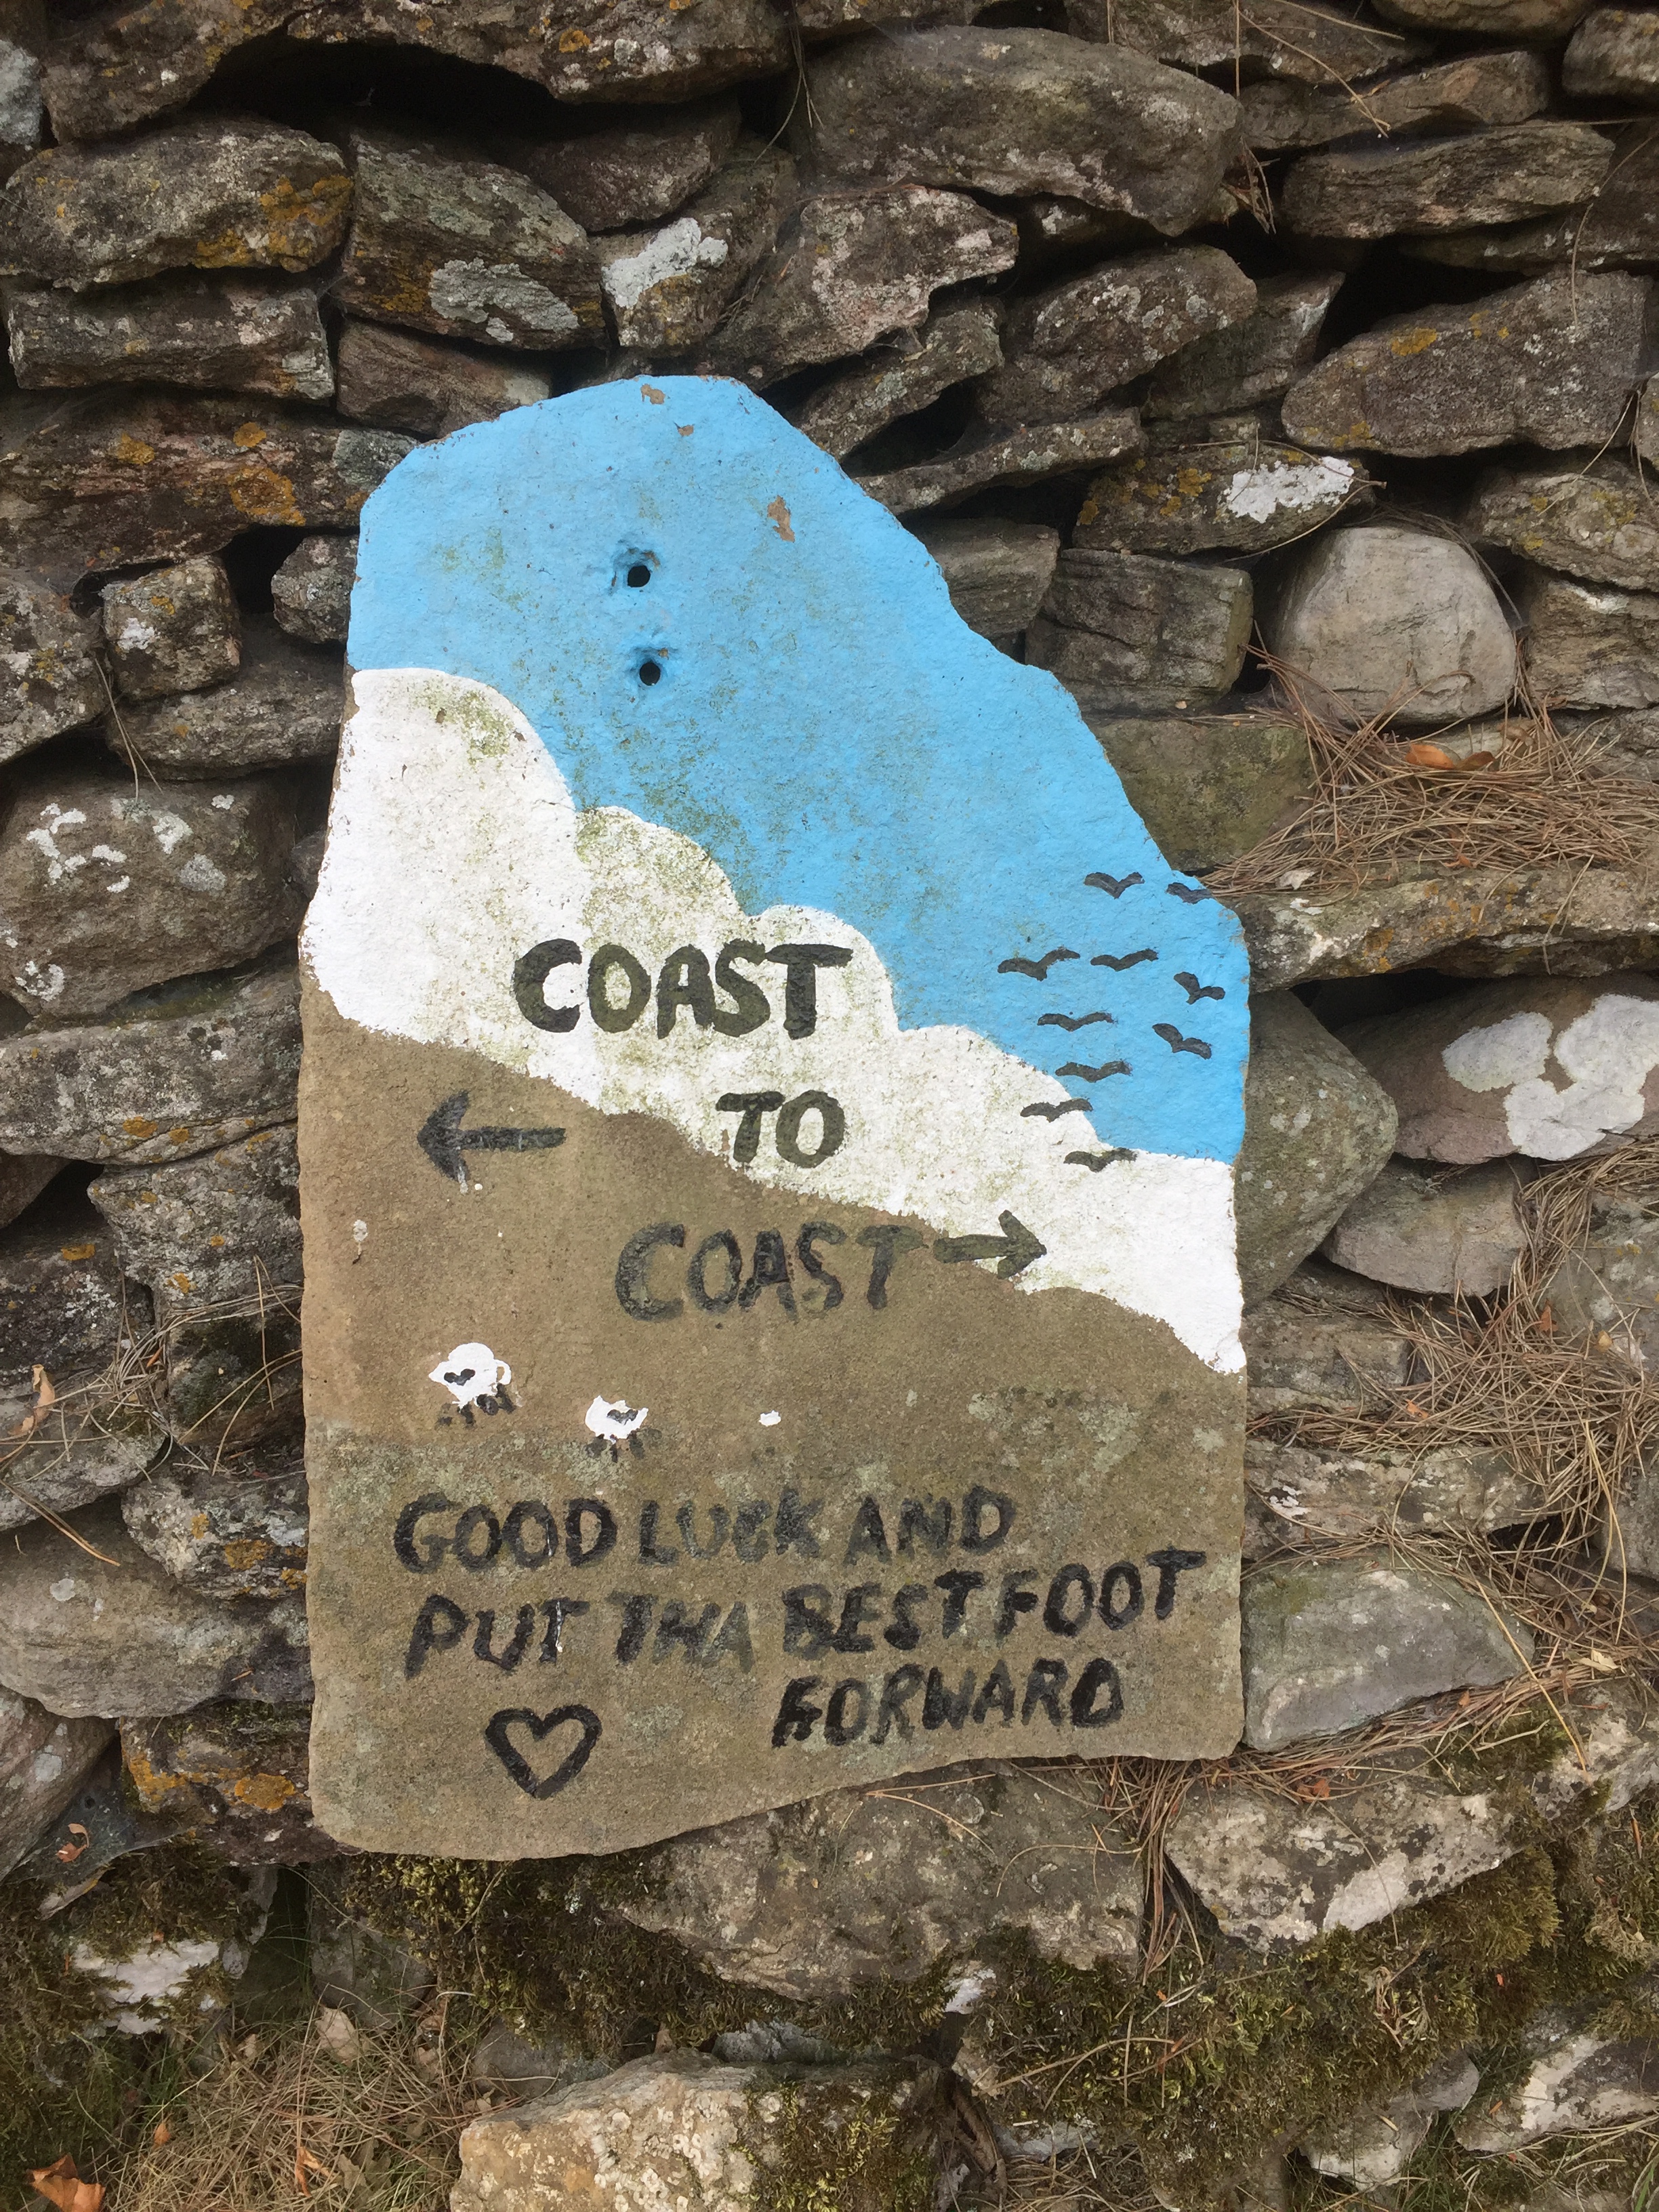 COAST
TO
COAST
GOOD LUCK AND
PUT THA BEST FOOT
FORWARD